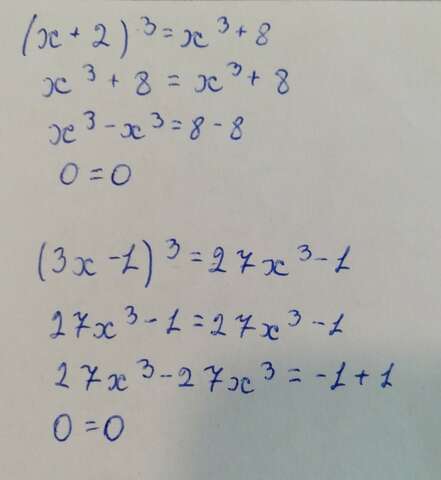 (x + 2)³ = x³ + 8
x³ + 8 = x³ + 8
x³ - x³ = 8 - 8
0 = 0
(3x - 1)³ = 27x³ - 1
27x³ - 1 = 27x³ - 1
27x³ - 27x³ = -1 + 1
0 = 0